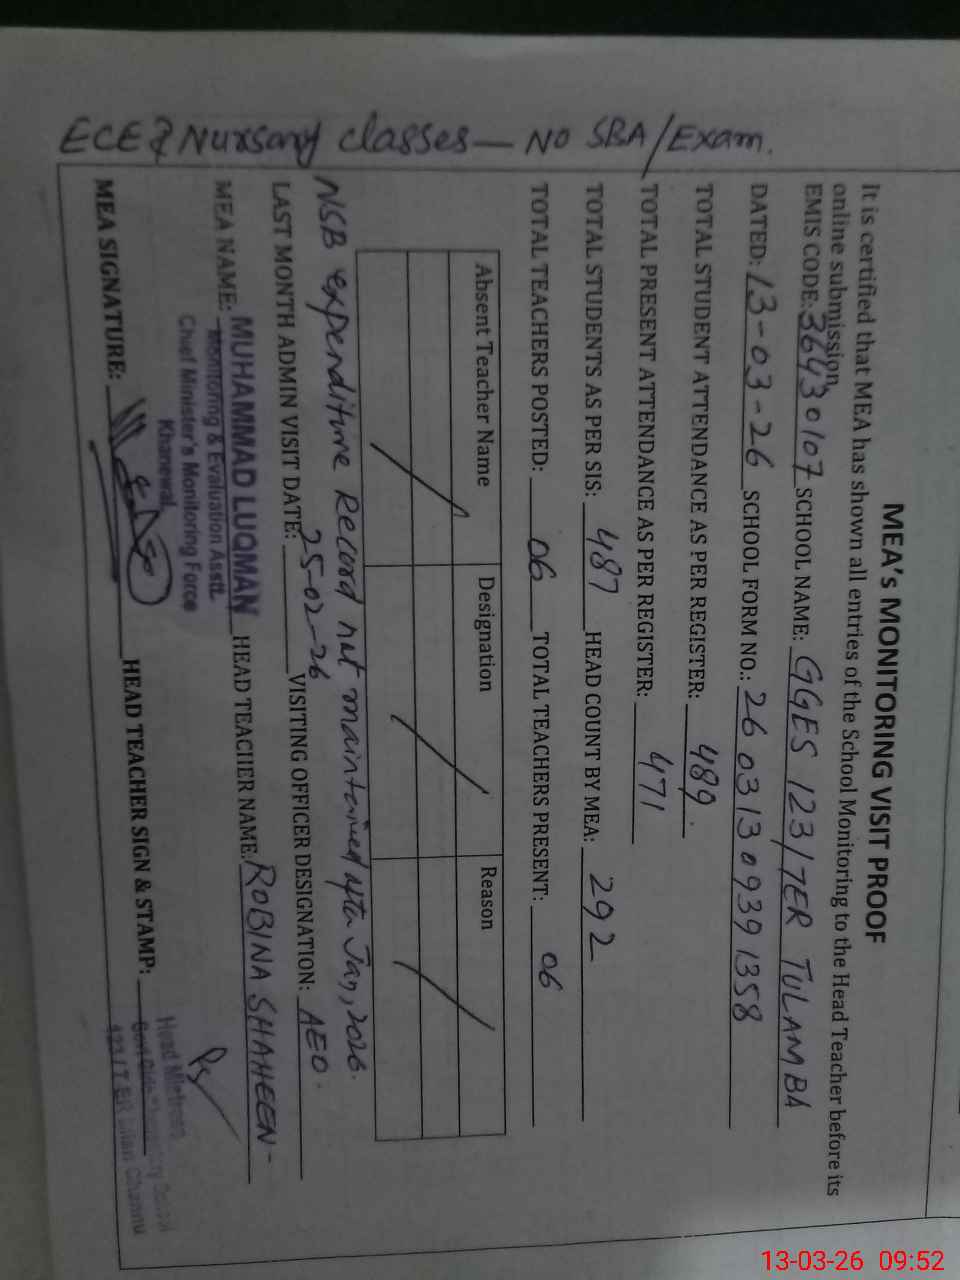 MEA's MONITORING VISIT PROOF
It is certified that MEA has shown all entries of the School Monitoring to the Head Teacher before its
online submission.
EMIS CODE: 36430107 SCHOOL NAME: GGES 123/7ER TULAMBA
DATED: 13-03-26 SCHOOL FORM NO.: 26031309391358
TOTAL STUDENT ATTENDANCE AS PER REGISTER: 489.
TOTAL PRESENT ATTENDANCE AS PER REGISTER: 471
TOTAL STUDENTS AS PER SIS: 487 HEAD COUNT BY MEA: 292
TOTAL TEACHERS POSTED: 06 TOTAL TEACHERS PRESENT: 06
Absent Teacher Name Designation Reason
NSB expenditure Record not maintained after Jan, 2026.
LAST MONTH ADMIN VISIT DATE: 25-02-26 VISITING OFFICER DESIGNATION: AEO.
MEA NAME: MUHAMMAD LUQMAN HEAD TEACHER NAME: ROBINA SHAHEEN-
Monitoring & Evaluation Asstt.
Chief Minister's Monitoring Force
Khanewal
MEA SIGNATURE: HEAD TEACHER SIGN & STAMP:
Head Mistress
Govt Girls Elementary School
123/7 ER
ECE & Nursary classes — NO SBA/Exam.
13-03-26 09:52